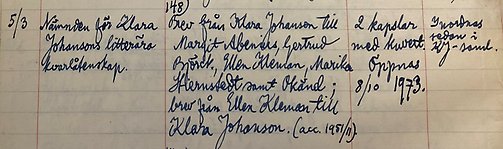 148)
5/3 Nämnden för Klara Brev från Klara Johanson till 2 kapslar Inordnas
Johansons litterära Margit Abenius, Gertrud med kuvert. redan i
kvarlåtenskap. Björk, Ellen Kleman, Marika Öppnas KJ-saml.
Stiernstedt samt Okänd; 8/10 1973.
brev från Ellen Kleman till
Klara Johanson. (acc. 1951/11).